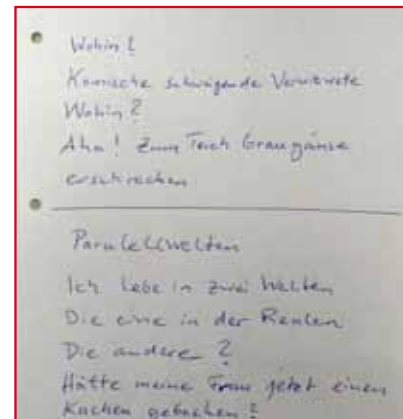 Wohin?
Komische schweigende Verwitwete
Wohin?
Aha! Zum Teich Graugänse
erschrecken
Parallelwelten
Ich lebe in zwei Welten
Die eine in der Realen
Die andere?
Hätte meine Frau jetzt einen
Kuchen gebacken?